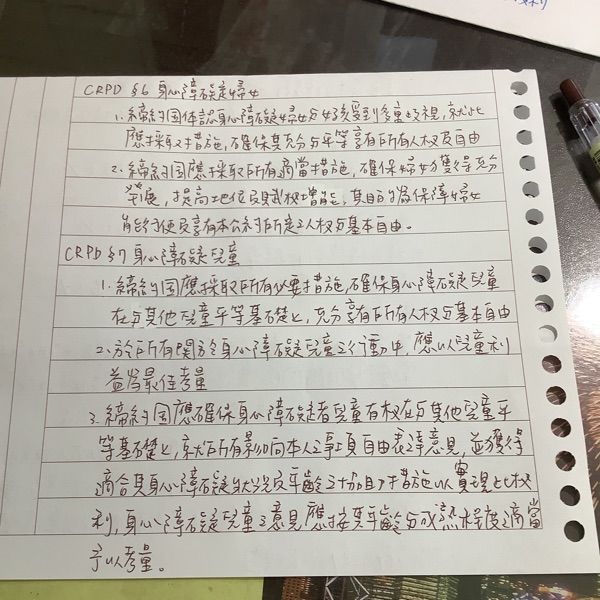 CRPD §6 身心障礙婦女
1. 締約国体認身心障礙婦女与女孩受到多重歧視,就此
應採取措施,確保其充分与平等享有所有人权及自由
2. 締約国應採取所有適當措施,確保婦女獲得充分
發展,提高地位及其权增能,其目的為保障婦女
能行使及享有本公約所定之人权与基本自由。
CRPD §7 身心障礙兒童
1. 締約国應採取所有必要措施,確保身心障礙兒童
在与其他兒童平等基礎上,充分享有所有人权与基本自由
2. 於所有関於身心障礙兒童之行動中,應以兒童利
益為最佳考量
3. 締約国應確保身心障礙者兒童有权在与其他兒童平
等基礎上,就所有影响本人之事項自由表達意見,並獲得
適合其身心障礙狀況及年齡之協助措施以實現此权
利,身心障礙兒童之意見應按其年齡与成熟程度適當
予以考量。